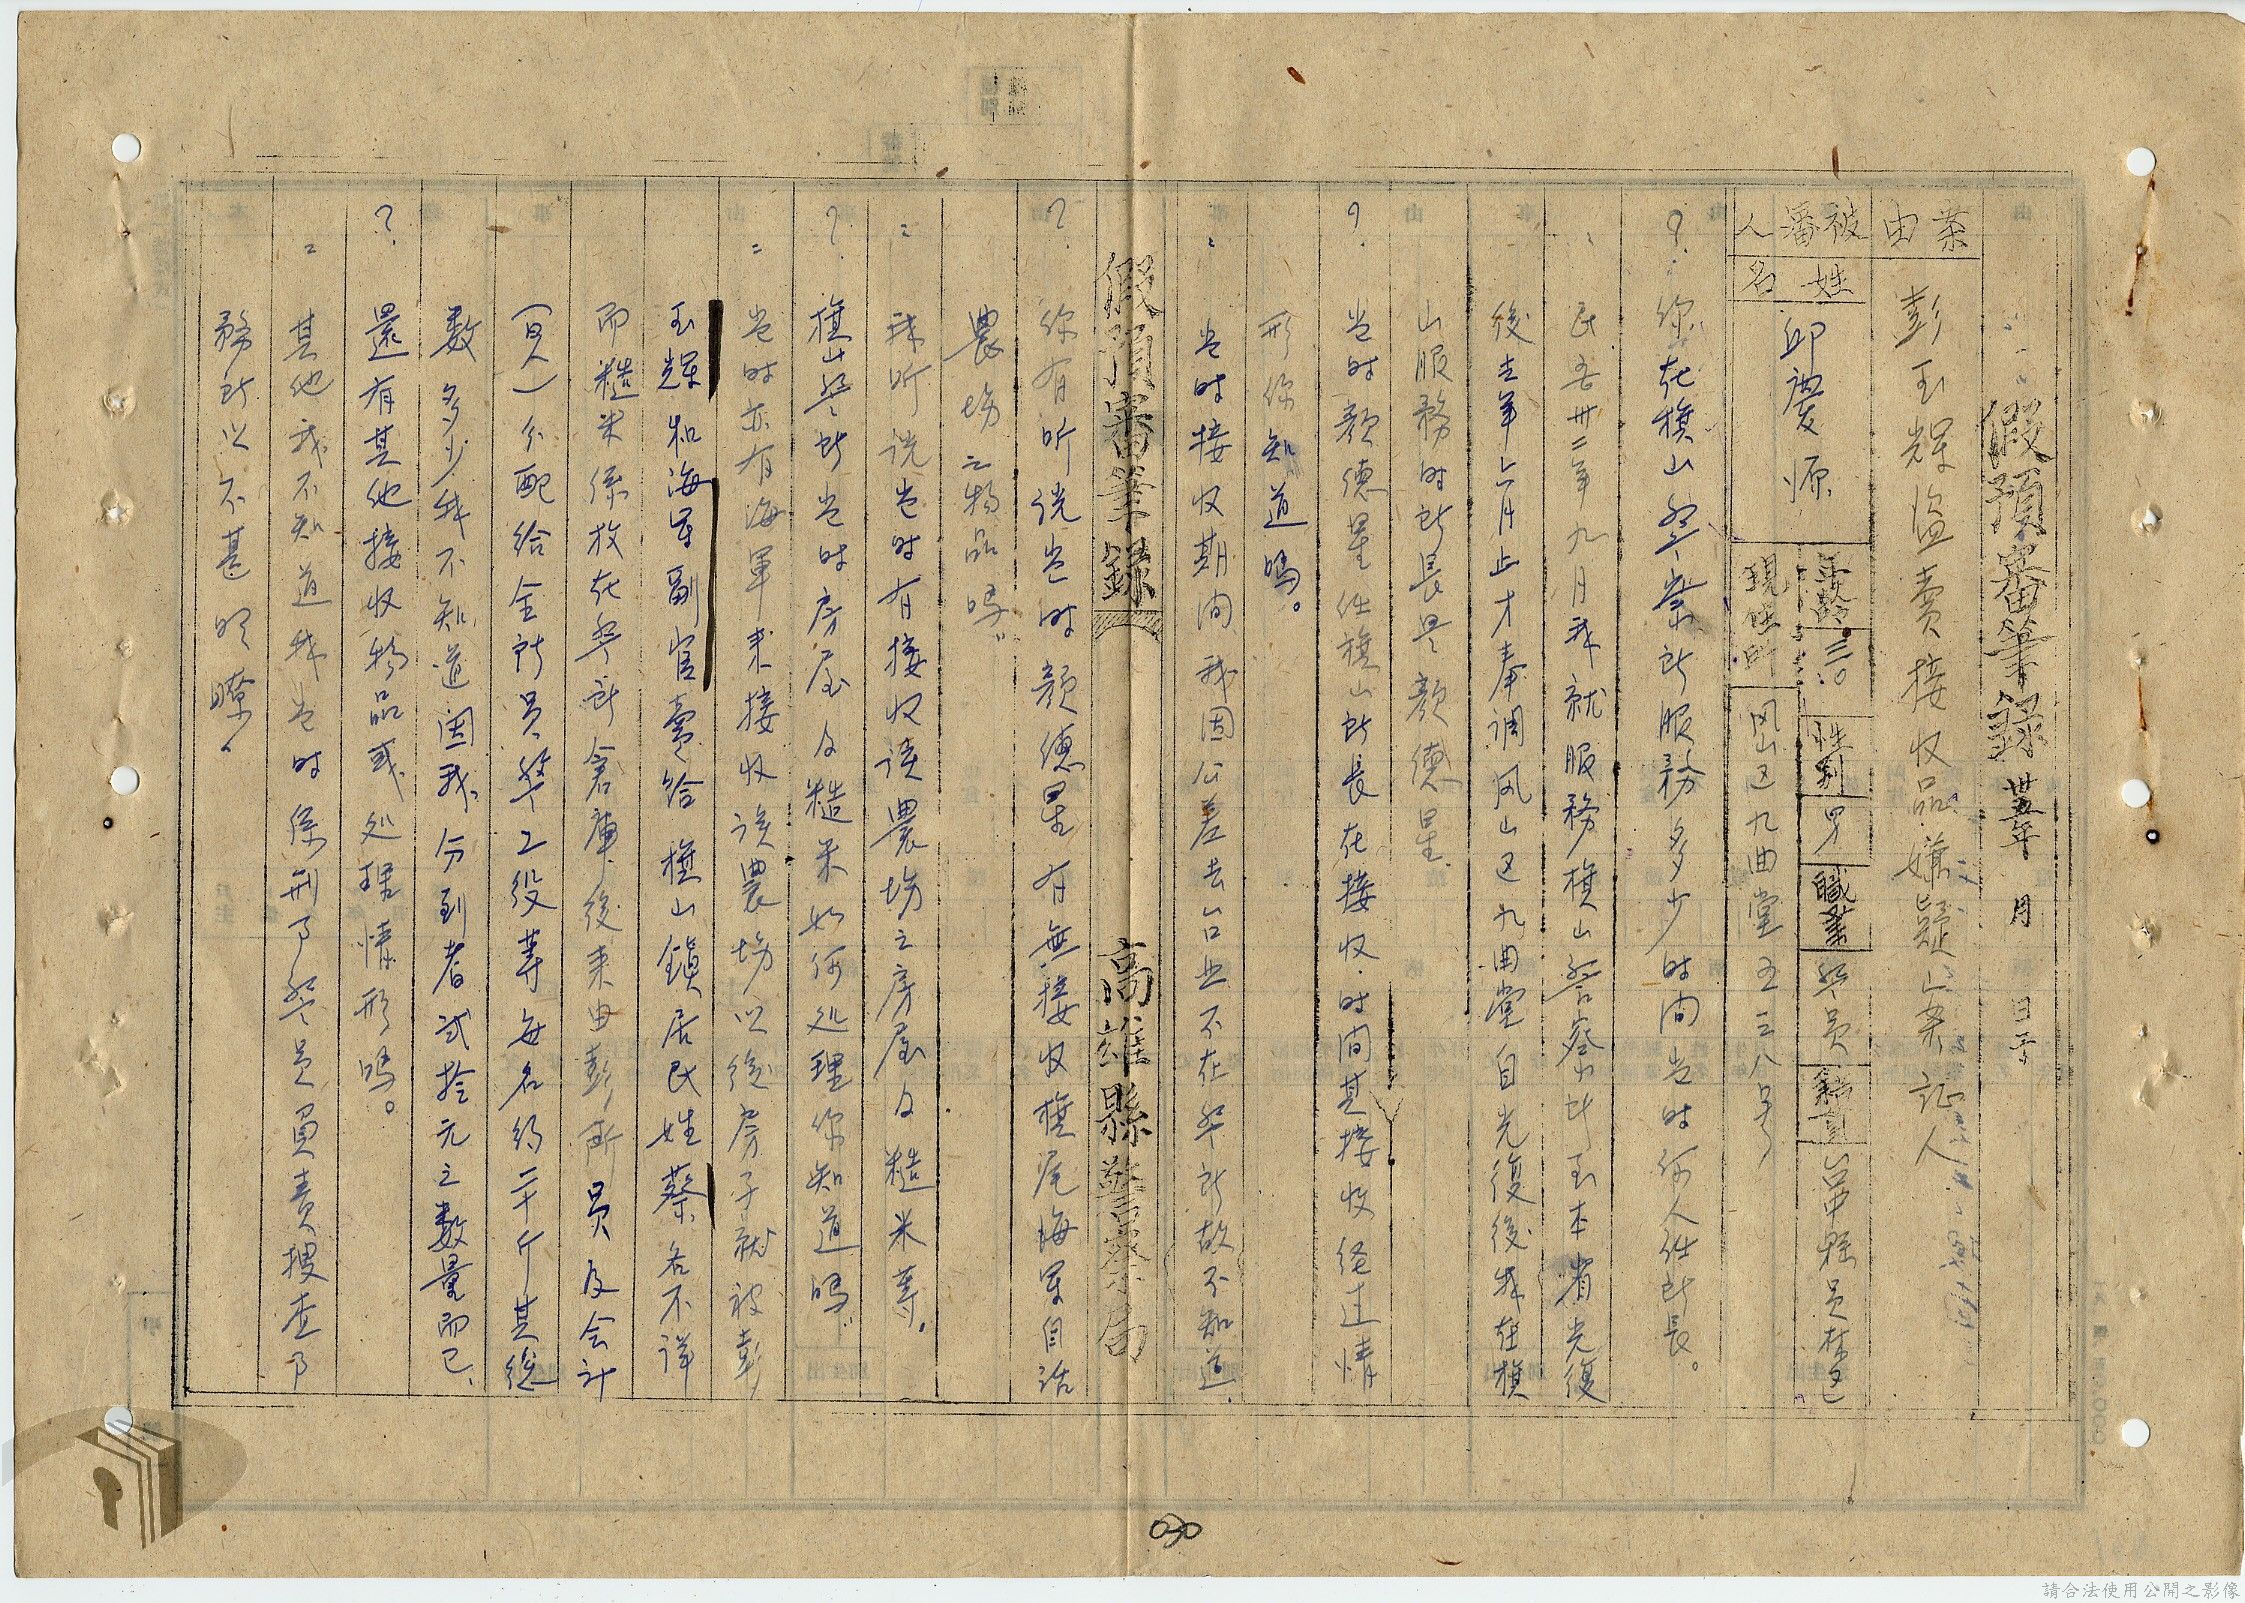 假預審筆録 卅五年 月 日 于
案由 彭玉輝盜賣接收品嫌疑一案証人
被審人
姓名 邱慶源 年齡 三〇 性別 男 職業 警員 籍貫 台中縣員林区
現住所 凤山区九曲堂五三八号
? 你在旗山警察所服務多少时间当时何人任所長。
: 民吾卅二年九月我就服務旗山警察所至本省光復
後去年六月止才奉调凤山区九曲堂自光復後我在旗
山服務时所長是顏德星
? 当时顏德星任旗山所長在接收时间其接收经过情
形你知道嗎。
: 当时接收期间我因公差去台北不在警所故不知道.
假預審筆録 高雄縣警察局
? 你有听说当时顏德星有無接收旗尾海軍自活
農場之物品嗎
: 我听说当时有接收该農場之房屋及糙米等。
? 旗山警所当时房屋及糙米如何处理你知道嗎
: 当时亦有海軍来接收该農場以後房子就被彭
玉輝和海軍副官賣给旗山鎮居民姓蔡名不详
而糙米係放在警所倉庫後来由彭所員及会计
(吳)分配给全所员警工役等每名约二十斤其総
数多少我不知道因我分到者式拾元之数量而已、
? 還有其他接收物品或处理情形嗎。
: 其他我不知道我当时係刑事警员負責搜查事
務所以不甚明瞭。
030
請合法使用公開之影像